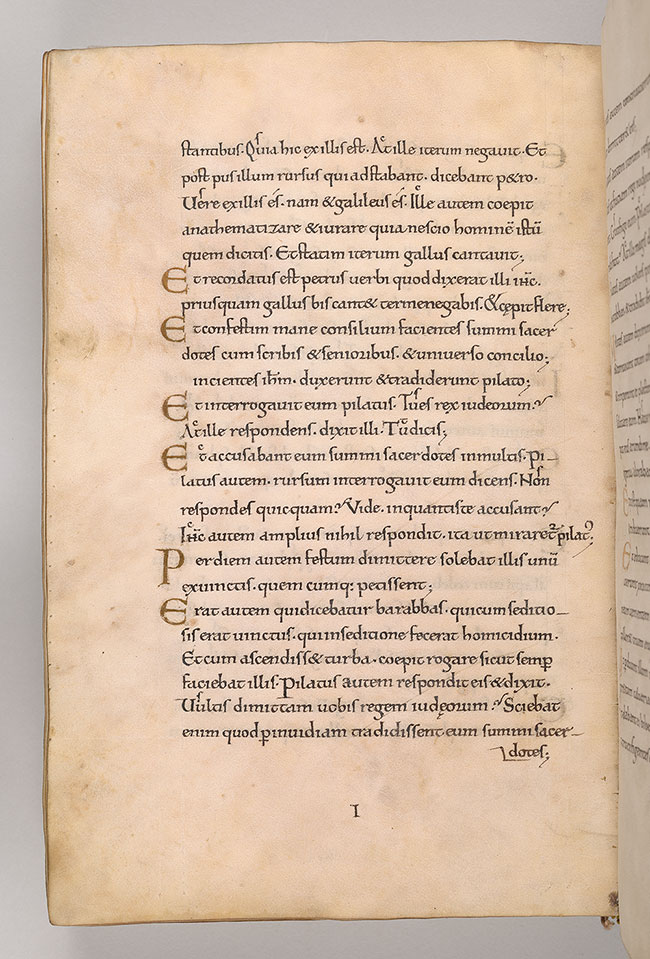 stantibus. Quia hic ex illis est. At ille iterum negavit. Et
post pusillum rursus qui adstabant. dicebant p&ro.
Vere ex illis és. nam & galileus és. Ille autem coepit
anathematizare & iurare quia nescio hominē istū
quem dicitis. Et statim iterum gallus cantauit;
Et recordatus est petrus uerbi quod dixerat illi ihc.
priusquam gallus bis cant& ter me negabis. & cępit flere;
Et confestim mane consilium facientes summi sacer
dotes cum scribis & senioribus. & uniuerso concilio;
incientes ihm. duxerunt & tradiderunt pilato;
Et interrogauit eum pilatus. Tu es rex iudeorum?
At ille respondens. dixit illi. Tu dicis;
Et accusabant eum summi sacerdotes in multis. Pi-
latus autem. rursum interrogauit eum dicens. Non
respondes quicquam? Vide. in quantis te accusant?
Ihc autem amplius nihil respondit. ita ut miraret pilat᾽;
Per diem autem festum dimittere solebat illis unū
ex uinctis. quem cumq: petissent;
Erat autem qui dicebatur barabbas. qui cum seditio-
sis erat uinctus. qui in seditione fecerat homicidium.
Et cum ascendiss& turba. coepit rogare sicut semp
faciebat illis. Pilatus autem respondit eis & dixit.
Vultis dimittam uobis regem iudęorum? Sciebat
enim quod p inuidiam tradidissent eum summi sacer-
dotes;
I